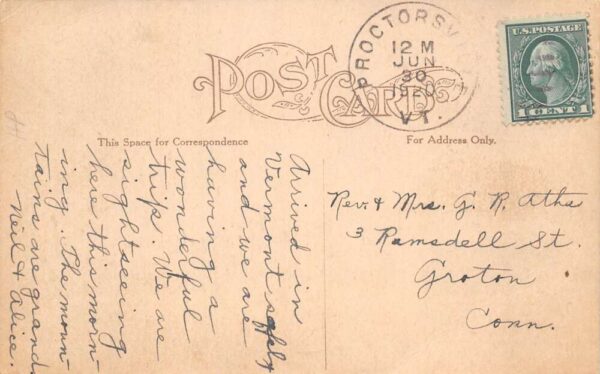 POST CARD
PROCTORSV
12 M
JUN
30
1920
VT.
U.S. POSTAGE
1 CENT 1
This Space for Correspondence
For Address Only.
Arrived in
Vermont safely
and we are
having a
wonderful
trip. We are
sightseeing
here this morn
ing. The moun
tains are grand.
Neil & Alice.
Rev. & Mrs. G. R. Atha
3 Ramsdell St.
Groton
Conn.